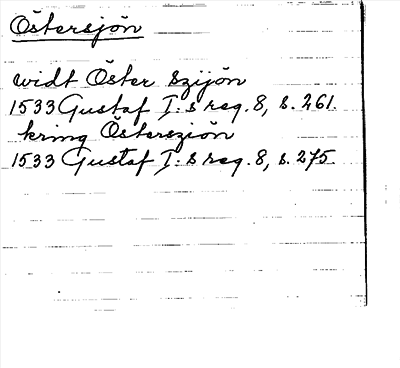 Östersjön
widt Öster Szijön
1533 Gustaf I:s reg. 8, s. 261.
kring Östersziön
1533 Gustaf I:s reg. 8, s. 275.